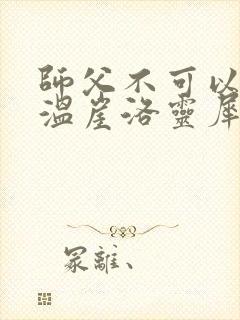 師父不可以
溫崖洛靈犀
冢離、